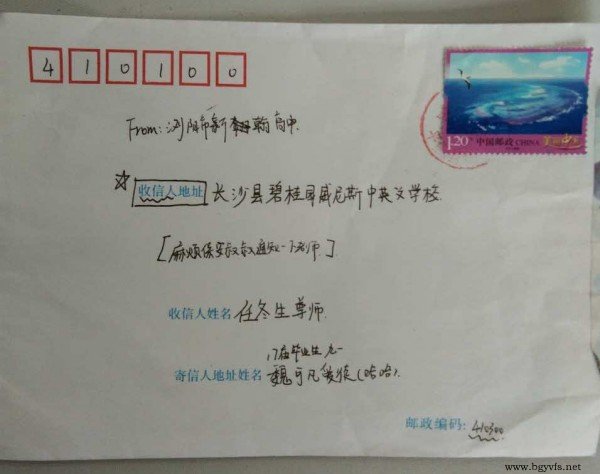 410100
1.20 中国邮政 CHINA
From: 浏阳市新翰高中.
☆ 收信人地址 长沙县碧桂园威尼斯中英文学校.
[麻烦保安叔叔通知一下老师.]
收信人姓名 任冬生尊师.
17届毕业生
寄信人地址姓名 魏可凡敬候(哈哈).
邮政编码: 410300
www.bgyvfs.net